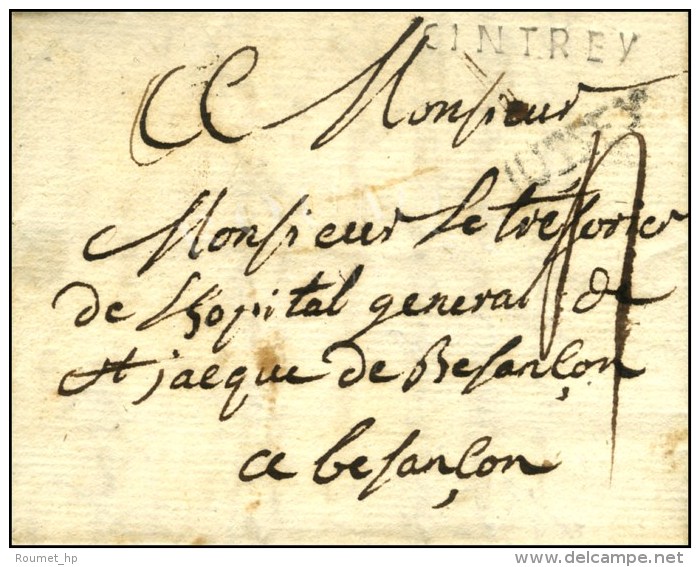 CINTREY
A Monsieur
JUSSEY
Monsieur Le trésorier
de Lhopital general de
St jacque de Besançon
a besançon
Roumet_hp
delcampe.net